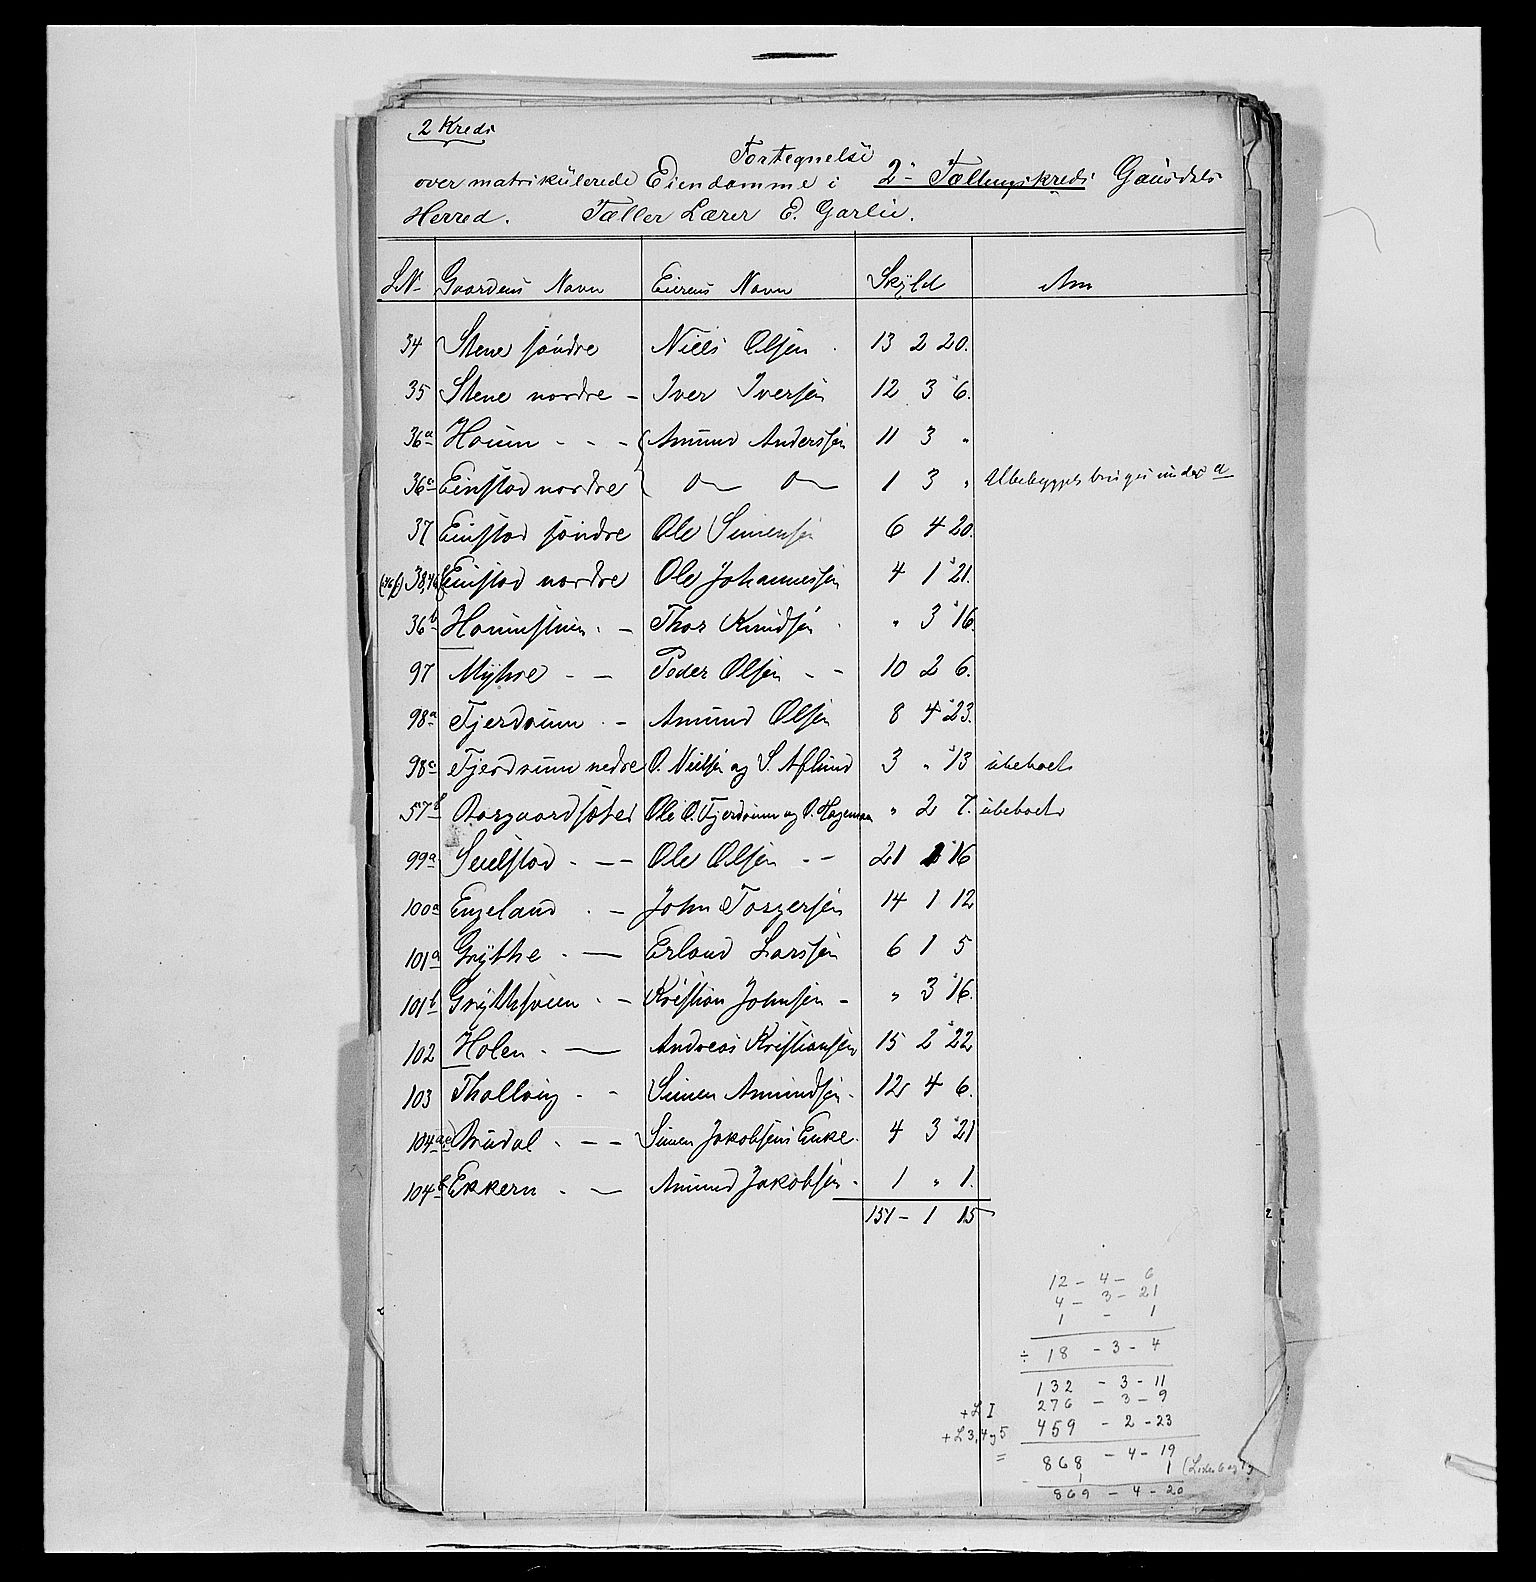 2 Kreds
Fortegnelse
over matrikülerede Eiendomme i 2den Tællingskreds Gausdals
Herred. Tæller Lærer E. Garlie.
LN. Gaardens Navn Eierens Navn Skyld Anm
34 Stene söndre Niels Olsen 13 2 20.
35 Stene nordre - Iver Iversen 12 3 6.
36a Houm - - - Amund Anderssen 11 3 "
36c Einstad nordre do do 1 3 " Ubebygget bruges under a
37 Einstad söndre Ole Simensen 6 4 20.
38, Einstad nordre Ole Johannessen 4 1 21.
36b Houmstuen. - Thor Knudsen " 3 16.
97 Myhre - - Peder Olsen - - 10 2 6.
98a Fjerdrum . - Amund Olsen 8 4 23.
98c Fjerdrum nedre O. Nielsen og S. Aflund 3 " 13 ubeboet
57b Aasgaardsæter Ole O. Fjerdrum og O. " 2 7. ubeboet
99a Seielstad . - - Ole Olsen - - 21 1 16
100a Engeland . - John Torgersen 14 1 12
101a Grythe . - Erland Larssen 6 1 5
101b Grytheveen . - Kristian Johnsen - " 3 16.
102 Holen . - Andreas Kristiansen 15 2 22
103 Thallaug . - Simen Amundsen. 12 4 6.
104a Aradal . - - Simen Jakobsens Enke. 4 3 21
104b Ekkern . - Amund Jakobsen. 1 " 1.
151 - 1 15
12 - 4 - 6
4 - 3 - 21
1 - 1
÷ 18 - 3 - 4
132 - 3 - 11
+ L I 276 - 3 - 9
+ L 3, 4 og 5 459 - 2 - 23
= 868 - 4 - 19
1 1
869 - 4 - 20